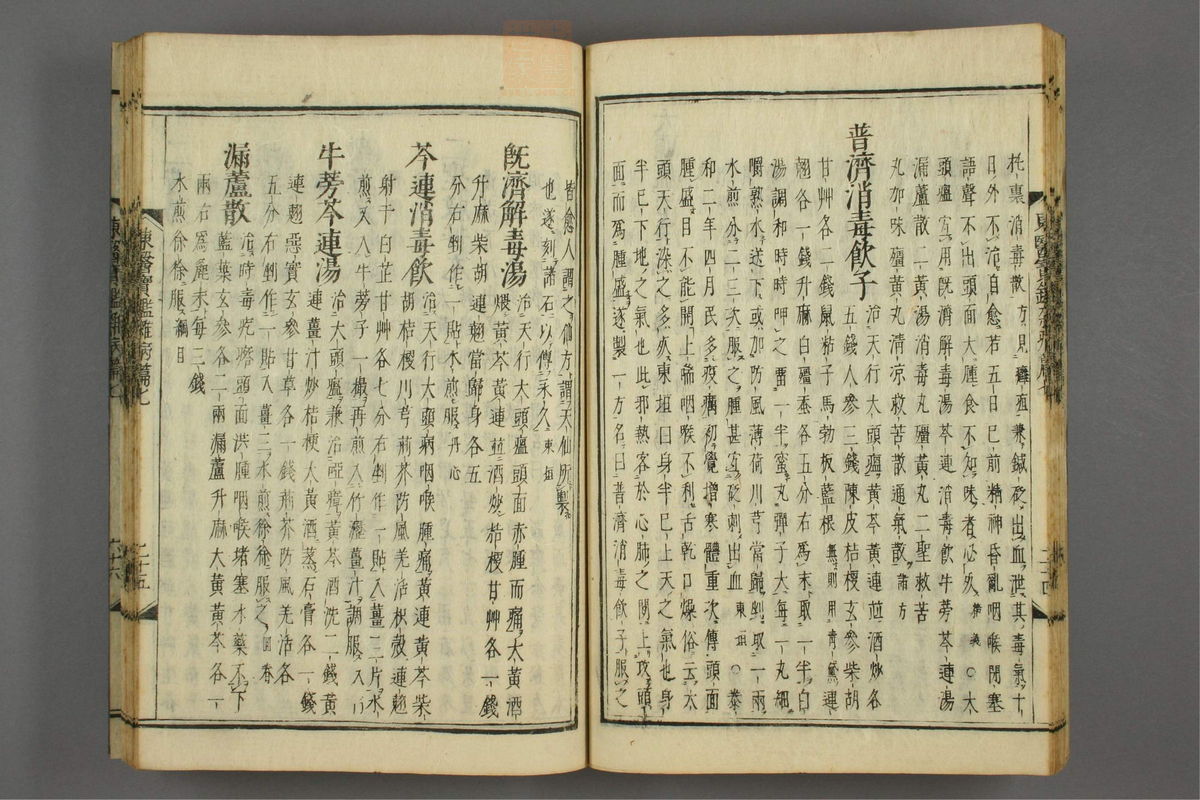 托裏消毒散方見癰疽兼鍼砭出血泄其毒氣十
日外不治自愈若五日已前精神昏亂咽喉閉塞
語聲不出頭面大腫食不知味者必死 ○大
頭瘟宜用旣濟解毒湯芩連消毒飮牛蒡芩連湯
漏蘆散一黃湯消毒丸殭黃丸二聖救苦
丸加味殭黃丸淸凉救苦散通氣散諸方
普濟消毒飮子治天行大頭瘟黃芩黃連並酒炒各
五錢人參三錢陳皮桔梗玄參柴胡
甘艸各二錢鼠粘子馬勃板藍根無則用靑黛連
翹各一錢升麻白殭蚕各五分右爲末取一半白
湯調和時時呷之畱一半蜜丸彈子大每一丸細
嚼熟水送下或加防風薄荷川芎當歸剉取一兩
水煎分二三次服之腫甚宜砭刺出血東垣○泰
和二年四月民多疫癘初覺增寒體重次傳頭面
腫盛目不能開上喘咽喉不利舌乾口燥俗云大
頭天行染之多死東垣曰身半已上天之氣也身
半已下地之氣也此邪熱客於心肺之間上攻頭
面而爲腫盛遂製一方名曰普濟消毒飮子服之
皆愈人謂之仙方謂天仙所製
也遂刻諸石以傳永久東垣
旣濟解毒湯治天行大頭瘟頭面赤腫而痛大黃酒
煨黃芩黃連並酒炒桔梗甘艸各一錢
升麻柴胡連翹當歸身各五
分右剉作一貼水煎服丹心
芩連消毒飮治天行大頭病咽喉腫痛黃連黃芩柴
胡桔梗川芎荊芥防風羌活枳殼連翹
射干白芷甘艸各七分右剉作一貼入薑三片水
煎入牛蒡子一撮再煎入竹瀝薑汁調服入行
牛蒡芩連湯治大頭瘟兼治瘂瘴黃芩酒洗二錢黃
連薑汁炒桔梗大黃酒蒸石膏各一錢
連翹惡實玄參甘草各一錢荊芥防風羌活各
五分右剉作一貼入薑三水煎徐徐服之回春
漏蘆散治時毒疙瘩頭面洪腫咽喉堵塞水藥不下
藍葉玄參各二兩漏蘆升麻大黃黃芩各一
兩右爲麤末每三錢
水煎徐徐服綱目